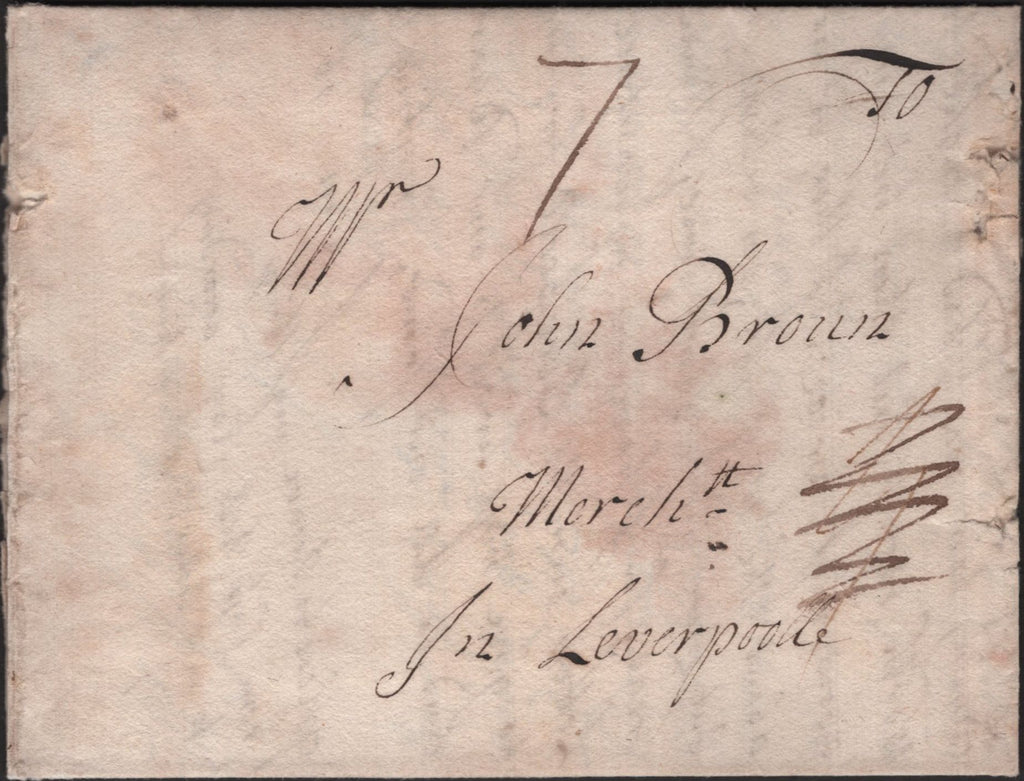 7 To
Mr
John Broun
Merchtt
In Leverpoole